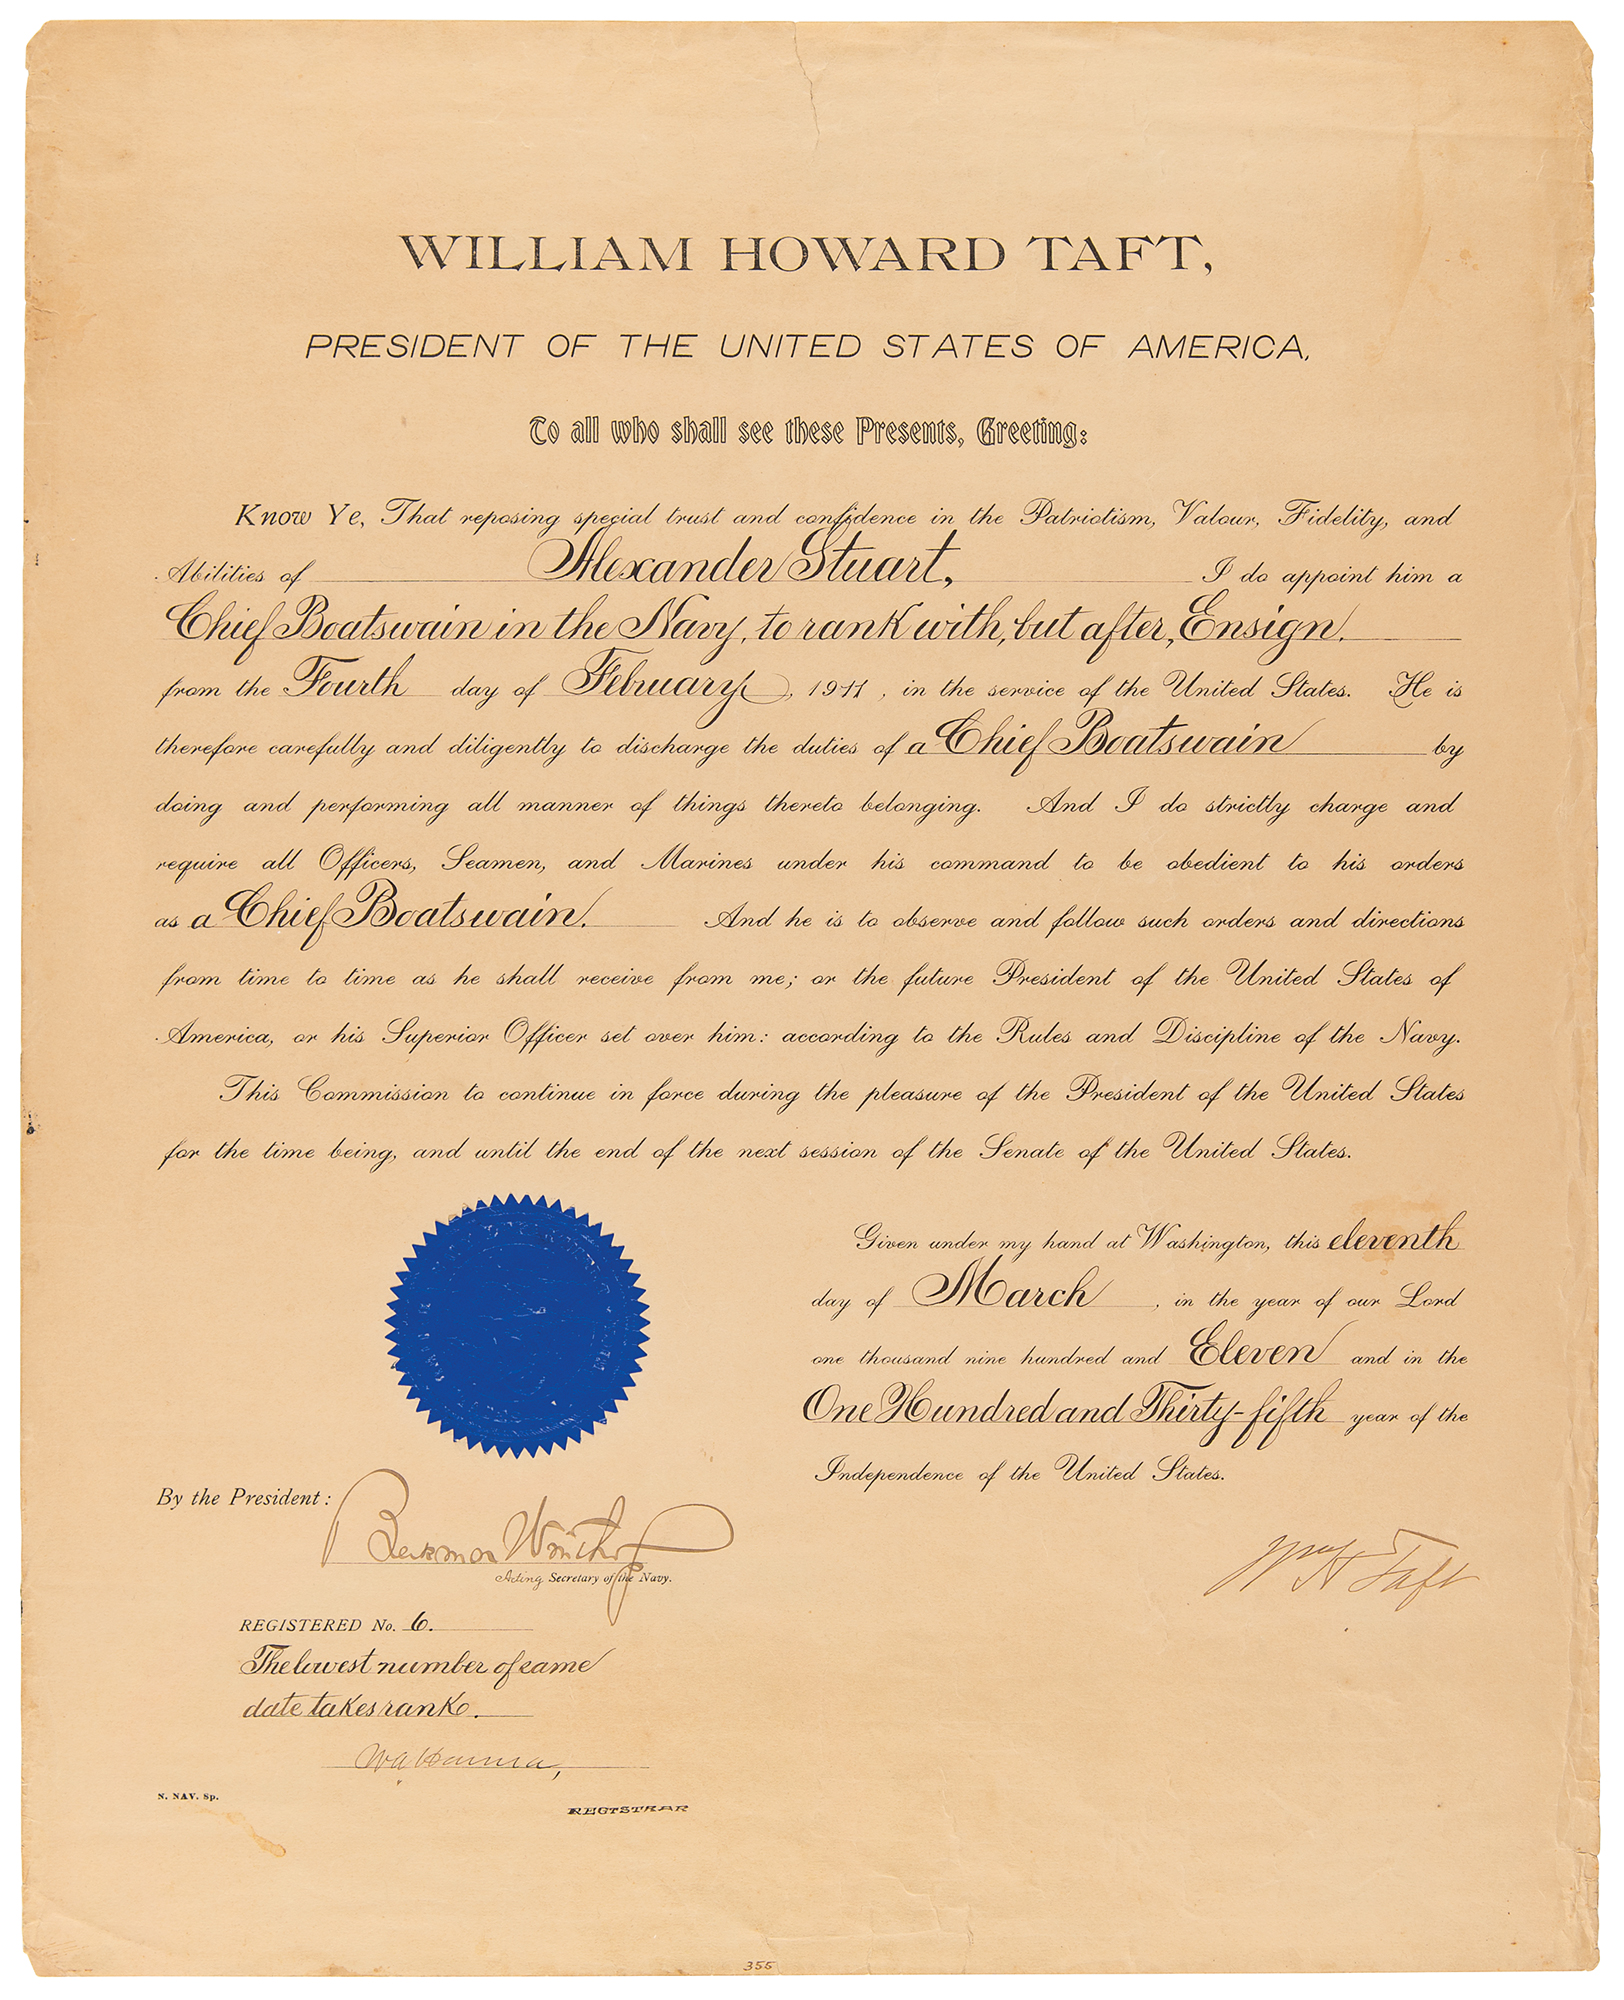 WILLIAM HOWARD TAFT,
PRESIDENT OF THE UNITED STATES OF AMERICA,
To all who shall see these Presents, Greeting:
Know Ye, That reposing special trust and confidence in the Patriotism, Valour, Fidelity, and
Abilities of Alexander Stuart, I do appoint him a
Chief Boatswain in the Navy, to rank with, but after, Ensign.
from the Fourth day of February, 1911, in the service of the United States. He is
therefore carefully and diligently to discharge the duties of a Chief Boatswain by
doing and performing all manner of things thereto belonging. And I do strictly charge and
require all Officers, Seamen, and Marines under his command to be obedient to his orders
as a Chief Boatswain. And he is to observe and follow such orders and directions
from time to time as he shall receive from me; or the future President of the United States of
America, or his Superior Officer set over him: according to the Rules and Discipline of the Navy.
This Commission to continue in force during the pleasure of the President of the United States
for the time being, and until the end of the next session of the Senate of the United States.
Given under my hand at Washington, this eleventh
day of March, in the year of our Lord
one thousand nine hundred and Eleven and in the
One Hundred and Thirty-fifth year of the
Independence of the United States.
By the President:
Beekman Winthrop
Acting Secretary of the Navy.
Wm H Taft
REGISTERED No. 6.
The lowest number of same
date takes rank.
N. NAV. Sp.
REGISTRAR
355